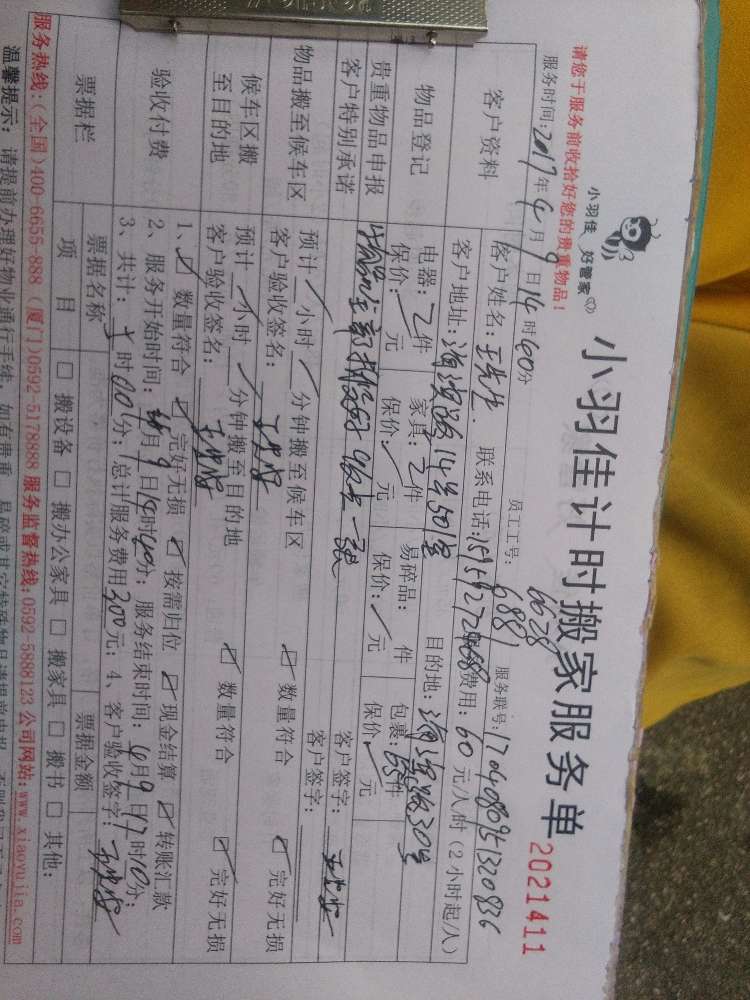 小羽佳 好管家
小羽佳计时搬家服务单
2021411
请您于服务前收拾好您的贵重物品!
6628
员工工号: 6881 服务联号: 1704080951320836
服务时间: 2017年4月9日14时40分
客户资料
客户姓名: 王先生. 联系电话: 费用: 60元/人/时(2小时起/人)
客户地址: 14号501室 目的地: 30号
物品登记
电器: 2件 家具: 2件 易碎品: 件 包裹: 65件
保价: / 元 保价: / 元 保价: / 元 保价: / 元
贵重物品申报
客户特别承诺
客户签字:
客户签字:
物品搬至候车区
预计 / 小时 / 分钟搬至候车区 ☑ 数量符合 ☑ 完好无损
客户验收签名:
候车区搬
至目的地
预计 / 小时 / 分钟搬至目的地 ☑ 数量符合 ☑ 完好无损
客户验收签名:
验收付费
1、☑ 数量符合 ☑ 完好无损 ☑ 按需归位 ☑ 现金结算 ☑ 转账汇款
2、服务开始时间: 4月9日14时40分; 服务结束时间: 4月9日17时10分;
3、共计: 时 分; 总计服务费用300元; 4、客户验收签字:
票据栏
票据名称 票据金额
项目 □ 搬设备 □ 搬办公家具 □ 搬家具 □ 搬书 □ 其他:
服务热线:(全国)400-6655-888 (厦门)0592-5178888 服务监督热线:0592-5888123 公司网站:www.xiaoyujia.com
温馨提示: 请提前办理好物业通行手续,如有贵重、易碎或其它特殊物品请提前申报,否则